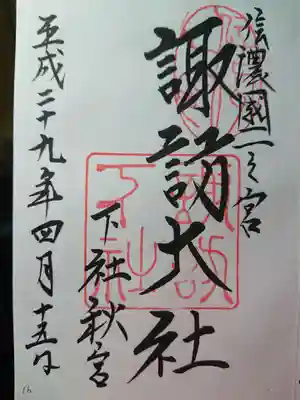 信濃國一之宮
諏訪大社
下社秋宮
平成二十九年四月十五日
諏訪下社
16